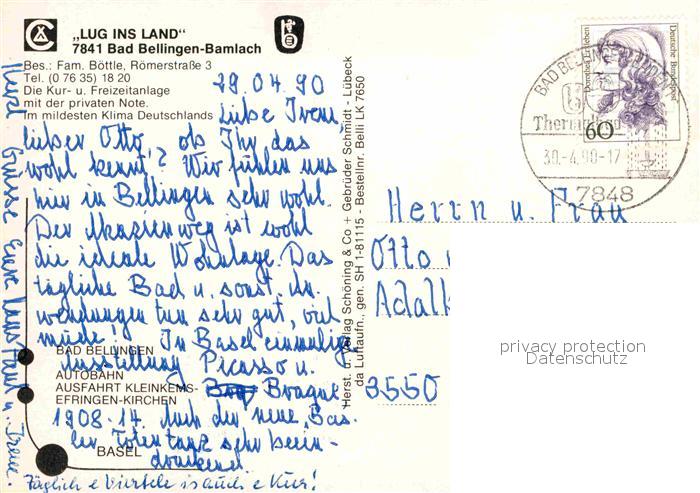 „LUG INS LAND"
7841 Bad Bellingen-Bamlach
Bes.: Fam. Böttle, Römerstraße 3
Tel. (0 76 35) 18 20
Die Kur- u. Freizeitanlage
mit der privaten Note.
Im mildesten Klima Deutschlands
29.04.90
Liebe Irene
lieber Otto, ob Ihr das
wohl kennt? Wir fühlen uns
hier in Bellingen sehr wohl.
Der Akazienweg ist wohl
die ideale Wohnlage. Das
tägliche Bad u. sonst. An-
wendungen tun sehr gut, viel
müde! In Basel einmalige
Ausstellung Picasso u.
Braque
1908-14. Auch der neue Bas-
ler Totentanz sehr beein-
druckend.
Täglich e Viertele is auch e Kur!
Herzl Grüsse Eure
u. Irene.
BAD BELLINGEN
AUTOBAHN
AUSFAHRT KLEINKEMS-
EFRINGEN-KIRCHEN
BASEL
Herst. u. Verlag Schöning & Co + Gebrüder Schmidt - Lübeck
da Luftaufn., gen. SH 1-81115 - Bestellnr. Belli LK 7650
Deutsche Bundespost
60
BAD BELLINGEN
Thermalbad
30.-4.90-17
7848
Herrn u. Frau
Otto
Adal
3550
privacy protection
Datenschutz